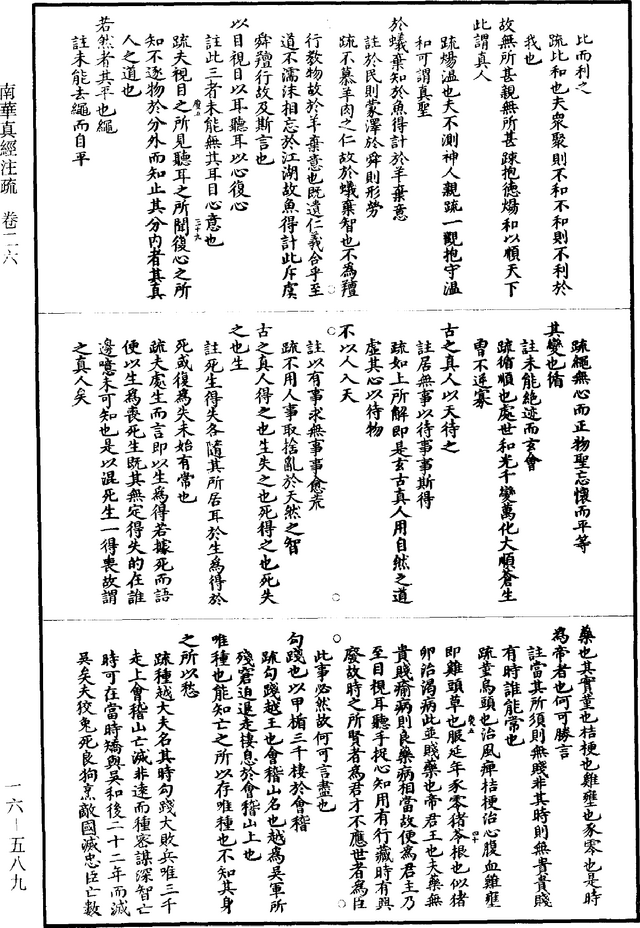 比而利之
疏比和也夫衆聚則不和不和則不利於
我也
故無所甚親無所甚踈抱德煬和以順天下
此謂真人
疏煬溫也夫不測神人親疏一觀抱守溫
和可謂真聖
於蟻棄知於魚得計於羊棄意
註於民則蒙澤於舜則形勞
疏不慕羊肉之仁故於蟻棄智也不為羶
行教物故於羊棄意也既遺仁義合乎至
道不濡沫相忘於江湖故魚得計此斥虞
舜羶行故及斯言也
以目視目以耳聽耳以心復心
註此三者未能無其耳目心意也
疏夫視目之所見聽耳之所聞復心之所
知不逐物於分外而知止其分內者其真
人之道也
若然者其平也繩
註未能去繩而自平
疏繩無心而正物聖忘懷而平等
其變也循
註未能絕迹而玄會
疏循順也處世和光千變萬化大順蒼生
曾不逆寡
古之真人以天待之
註居無事以待事事斯得
疏如上所解即是玄古真人用自然之道
虛其心以待物
不以人入天
註以有事求無事事愈荒
疏不用人事取捨亂於天然之智
古之真人得之也生失之也死得之也死失
之也生
註死生得失各隨其所居耳於生為得於
死或復為失未始有常也
疏夫處生而言即以生為得若據死而語
便以生為喪死生既其無定得失的在誰
邊噫未可知也是以混死生一得喪故謂
之真人矣
藥也其實堇也桔梗也雞壅也豕零也是時
為帝者也何可勝言
註當其所須則無賤非其時則無貴貴賤
有時誰能常也
疏堇烏頭也治風痺桔梗治心腹血雞壅
即雞頭草也服延年豕零豬苓根也似豬
卵治渴病此並賤藥也帝君王也夫藥無
貴賤瘉病則良藥病相當故便為君主乃
至目視耳聽手捉心知用有行藏時有與
廢故時之所賢者為君才不應世者為臣
此事必然故何可言盡也
句踐也以甲楯三千棲於會稽
疏句踐越王也會稽山名也越為吳軍所
殘窘迫退走棲息於會稽山上也
唯種也能知亡之所以存唯種也不知其身
之所以愁
疏種越大夫名其時句踐大敗兵唯三千
走上會稽山亡滅非遠而種密謀深智亡
時可在當時矯與吳和後二十二年而滅
吳矣夫狡兔死良狗烹敵國滅忠臣亡數
南華真經注疏　卷二六
一六－五八九